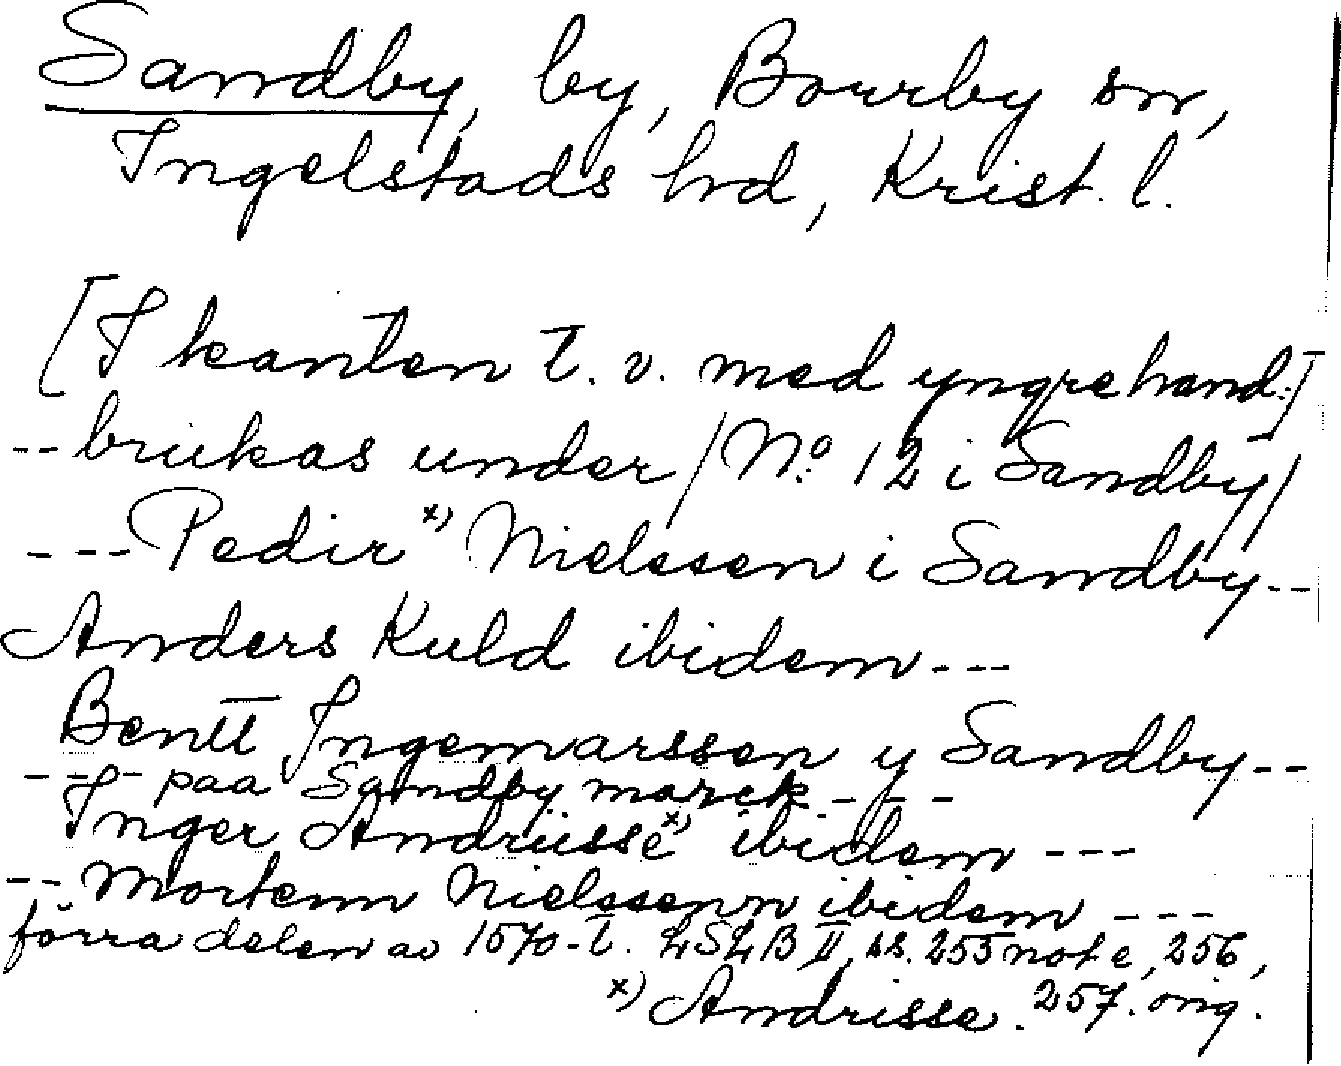 Sandby, by, Borrby sn,
Ingelstads hrd, Krist. l.
[I kanten t. v. med yngre hand:]
-- brukas under / No 12 i Sandby /
--- Pedir x) Nielssen i Sandby --
Anders Kuld ibidem ---
Bentt Ingemarssen y Sandby --
--- paa Sandby marck ---
Inger Andrüsse x) ibidem ---
-- Mortenn Nielssenn ibidem ---
förra delen av 1570-t. LSLB II, ss. 255 not e, 256,
257. orig.
x) Andrisse.